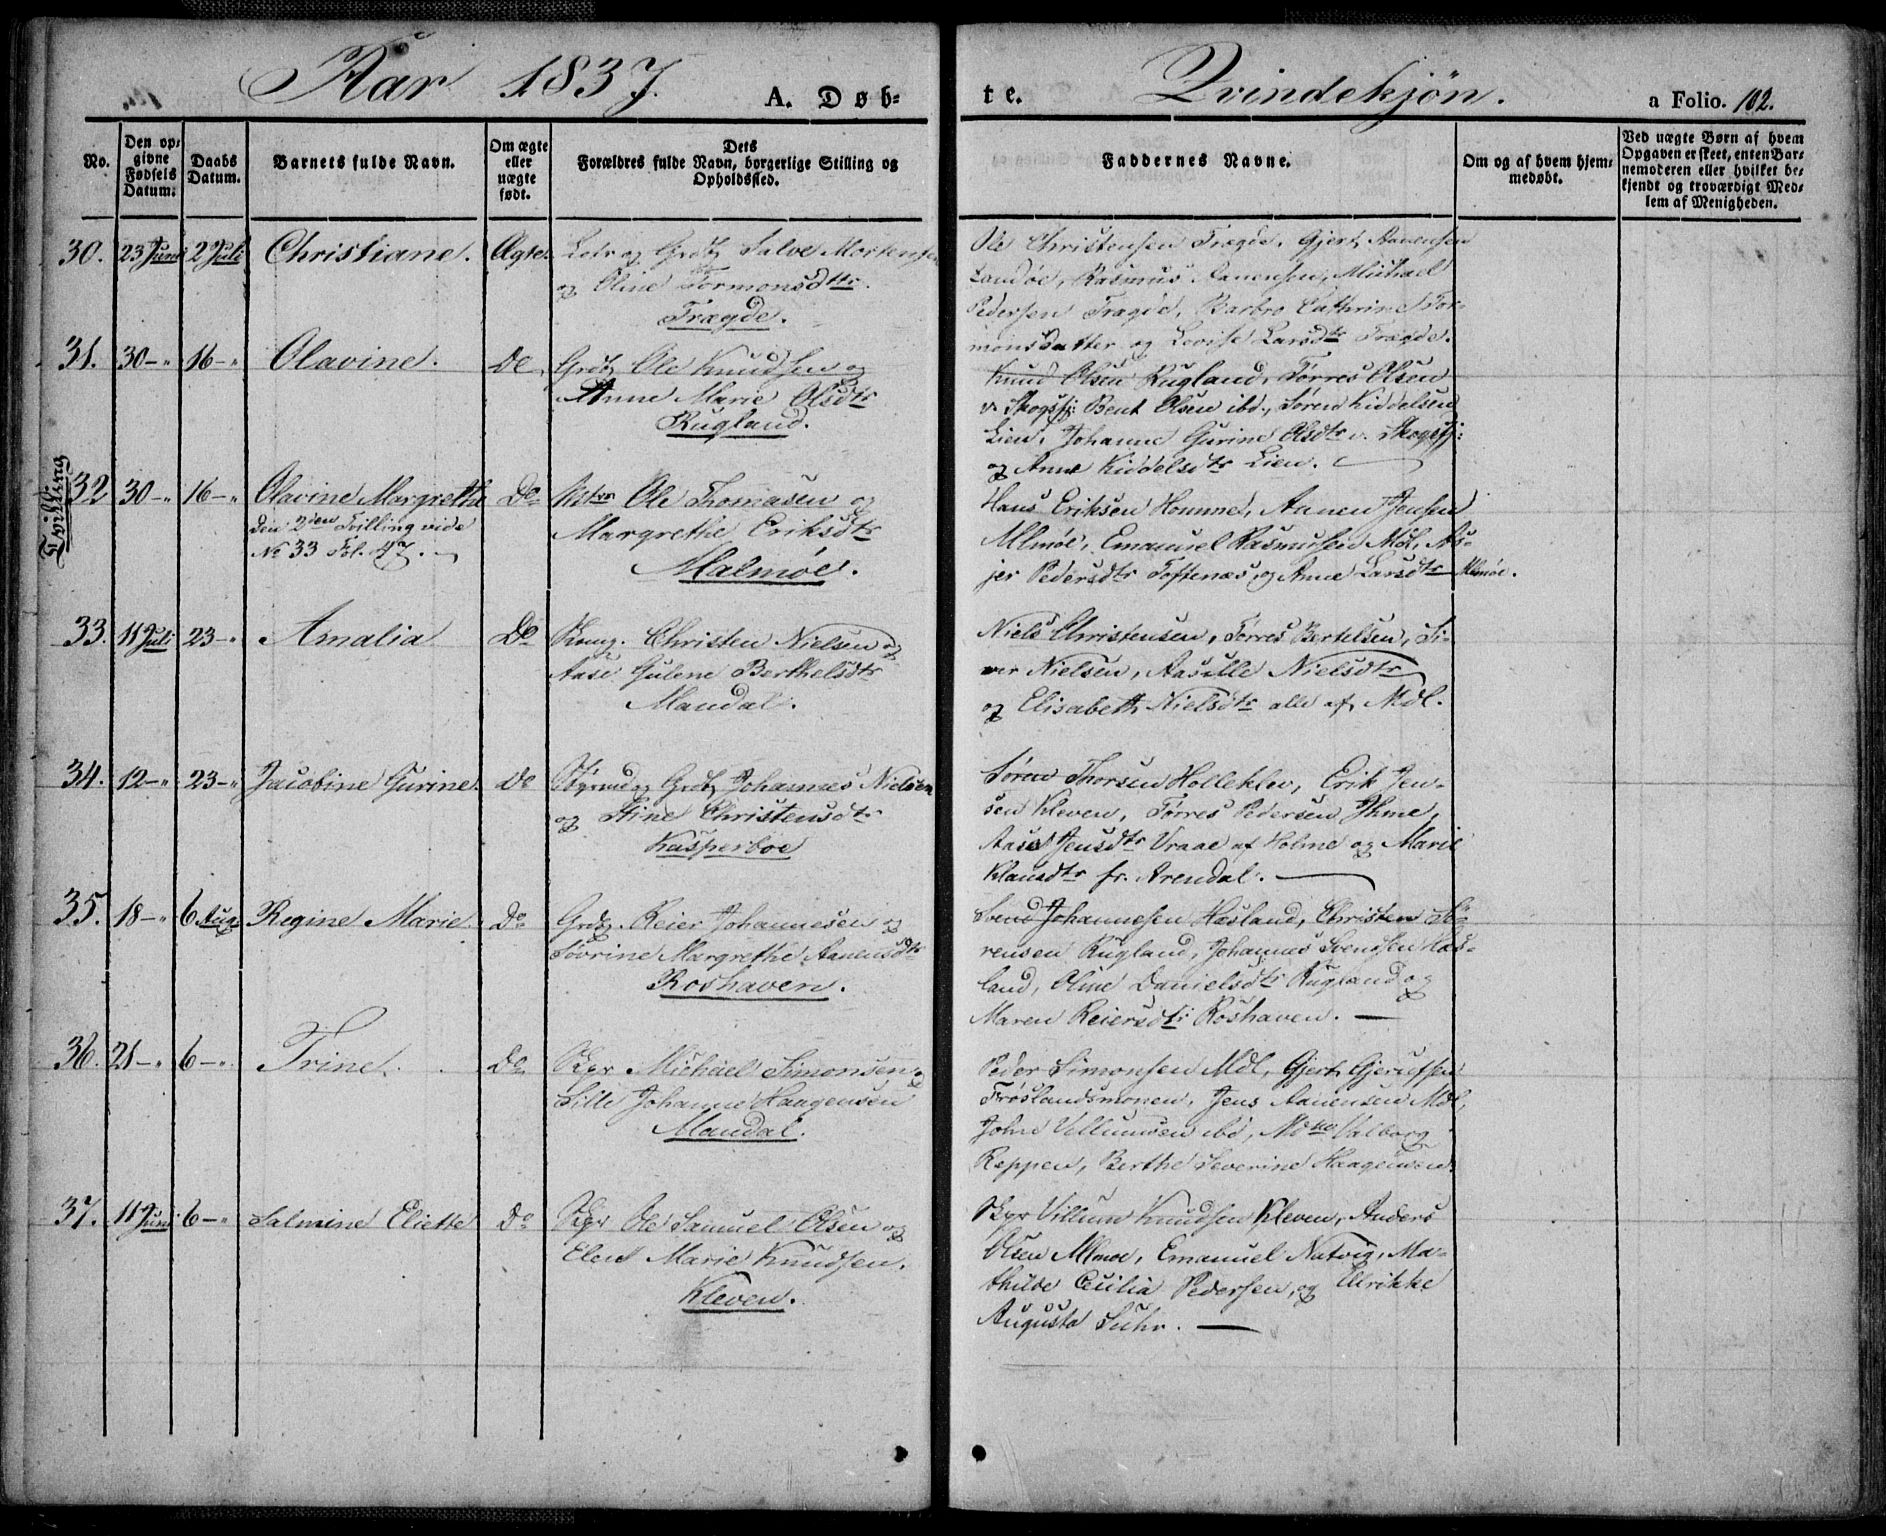 Aar 1837.
A. Døb-
te.
Qvindekjøn.
a Folio. 102.
No.
Den op-
givne
Fødsels
Datum.
Daabs
Datum.
Barnets fulde Navn.
Om ægte
eller
uægte
født.
Dets
Forældres fulde Navn, borgerlige Stilling og
Opholdssted.
Faddernes Navne.
Om og af hvem hjem-
medøbt.
Ved uægte Børn af hvem
Opgaven er skeet, enten Bar-
nemoderen eller hvilket be-
kjendt og troværdigt Med-
lem af Menigheden.
30. 23 Juni 2 Juli Christiane. Ægte. Lots og Grdb. Salve Mortensen
og Oline Tormonsdtr.
Trægde.
Ole Christensen Trægde, Gjert Aanensen
Landøe, Rasmus Aanensen, Michael
Pedersen Trægde, Barbro Cathrine Tor-
monsdatter og Lovise Larsdtr Trægde.
31. 30-" 16-" Olavine. Do Grdb. Ole Knudsen og
Anne Marie Olsdtr
Rugland.
Knud Olsen Rugland, Tørres Olsen
v. Skogsfj: Bent Olsen ibd., Søren Kiddelsen
Lien, Johanne Gurine Olsdtr v. Skogsfj:
og Anne Kiddelsdtr Lien.
Tvilling
32 30-" 16-" Olavine Margrethe Do Mstrm Ole Thomasen og
den 2den Tvilling vide
No 33 Fol. 47.
Margrethe Eriksdtr
Malmøe.
Hans Eriksen Homme, Aanen Jensen
Malmøe, Emanuel Rasmussen Mdl, As-
jer Pedersdtr Toftenæs, og Anne Larsdtr Malmøe.
33. 11 Juli 23-" Amalia Do Christen Nielsen og
Aase Gulene Berthelsdtr
Mandal.
Niels Christensen, Tørres Bertelsen, Si-
ver Nielsen, Aasille Nielsdtr
og Elisabeth Nielsdtr alle af Mdl.
34. 12-" 23-" Jacobine Gurine. Do Styrmd og Grdb. Johannes Nielsen
og Stine Christensdtr
Kasperboe
Søren Thorsen Holleklev, Erik Jen-
sen Kleven, Tørres Pedersen Ihme,
Aase Jensdtr Vraae af Holme og Marie
Klausdtr fr. Arendal.
35. 18-" 6 Aug. Regine Marie. Do Grdb. Reier Johannesen og
Sovrine Margrethe Aanensdtr
Roshaven.
Svend Johannesen Hasland, Christen Sø-
rensen Rugland, Johannes Svendsen Has-
land, Oline Danielsdtr Rugland og
Maren Reiersdtr Roshaven.
36. 21-" 6-" Trine. Do Skpr Michael Simonsen og
Sille Johanne Haagensen
Mandal.
Peder Simonsen Mdl, Gjert Gjerufsen
Frøslandsmonen, Jens Aanensen Mdl,
John Villumsen ibd, Valborg
Reppen, Berthe Severine Haagensen.
37. 11 Juni 6-" Salmine Eliette Do Skpr Ole Samuel Olsen og
Elen Marie Knudsen.
Kleven.
Skpr Villum Knudsen Kleven, Anders
Olsen Malmøe, Emanuel Natvig, Ma-
thilde Cecilia Pedersen, og Ulrikke
Augusta Suhr.